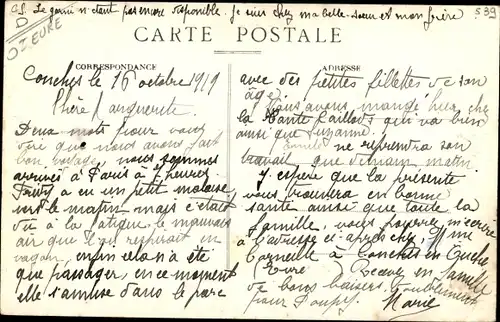 P.S. Le garni n'étant pas encore disponible. Je suis chez ma belle-soeur et mon frère
539
D
07 EURE
CARTE POSTALE
CORRESPONDANCE
ADRESSE
Conches le 16 octobre 1919
Chère Marguerite
Deux mots pour vous
dire que nous avons fait
bon voyage, nous sommes
arrivés à Paris à 7 heures
a eu un petit malaise
le matin mais c'était
dû à la fatigue, le mauvais
air que l'on respirait en
wagon, enfin cela n'a été
que passager, en ce moment
elle s'amuse dans le parc
avec des petites fillettes de son
âge.
Nous avons mangé hier chez
la Tante qui va bien
ainsi que Suzanne.
Emile ne reprendra son
travail que demain matin.
J'espère que la présente
vous trouvera en bonne
santé ainsi que toute la
famille, vous pouvez m'écrire
à l'adresse ci-après chez Mme
à Conches en Ouche
Eure. Recevez en famille
de bons baisers
pour
Marie